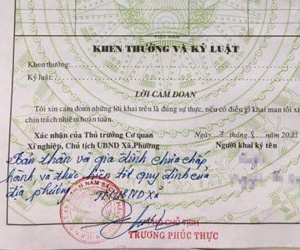 KHEN THƯỞNG VÀ KỶ LUẬT
Khen thưởng:
Kỷ luật:
LỜI CAM ĐOAN
Tôi xin cam đoan những lời khai trên là đúng sự thực, nếu có điều gì khai man tôi xin
chịu trách nhiệm hoàn toàn.
Xác nhận của Thủ trưởng Cơ quan
Xí nghiệp, Chủ tịch UBND Xã, Phường
Ngày
Người khai ký tên
Bản thân và gia đình chưa chấp
hành, và thực hiện tốt quy định của
địa phương.
TM. UBND Xã
CHỦ TỊCH
TRƯƠNG PHÚC THỰC